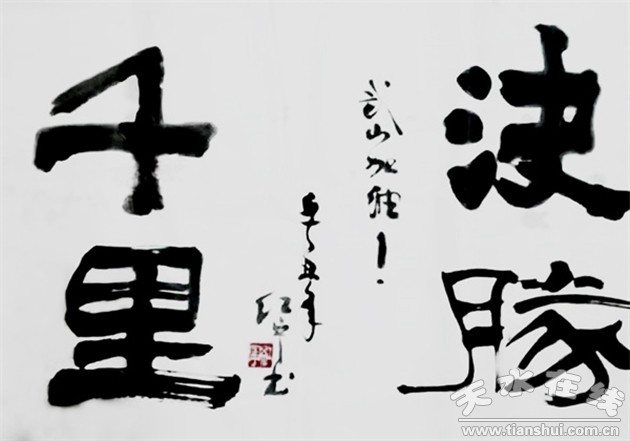 決勝
武山加油！
辛丑年
书
千里
天水在线
www.tianshui.com.cn